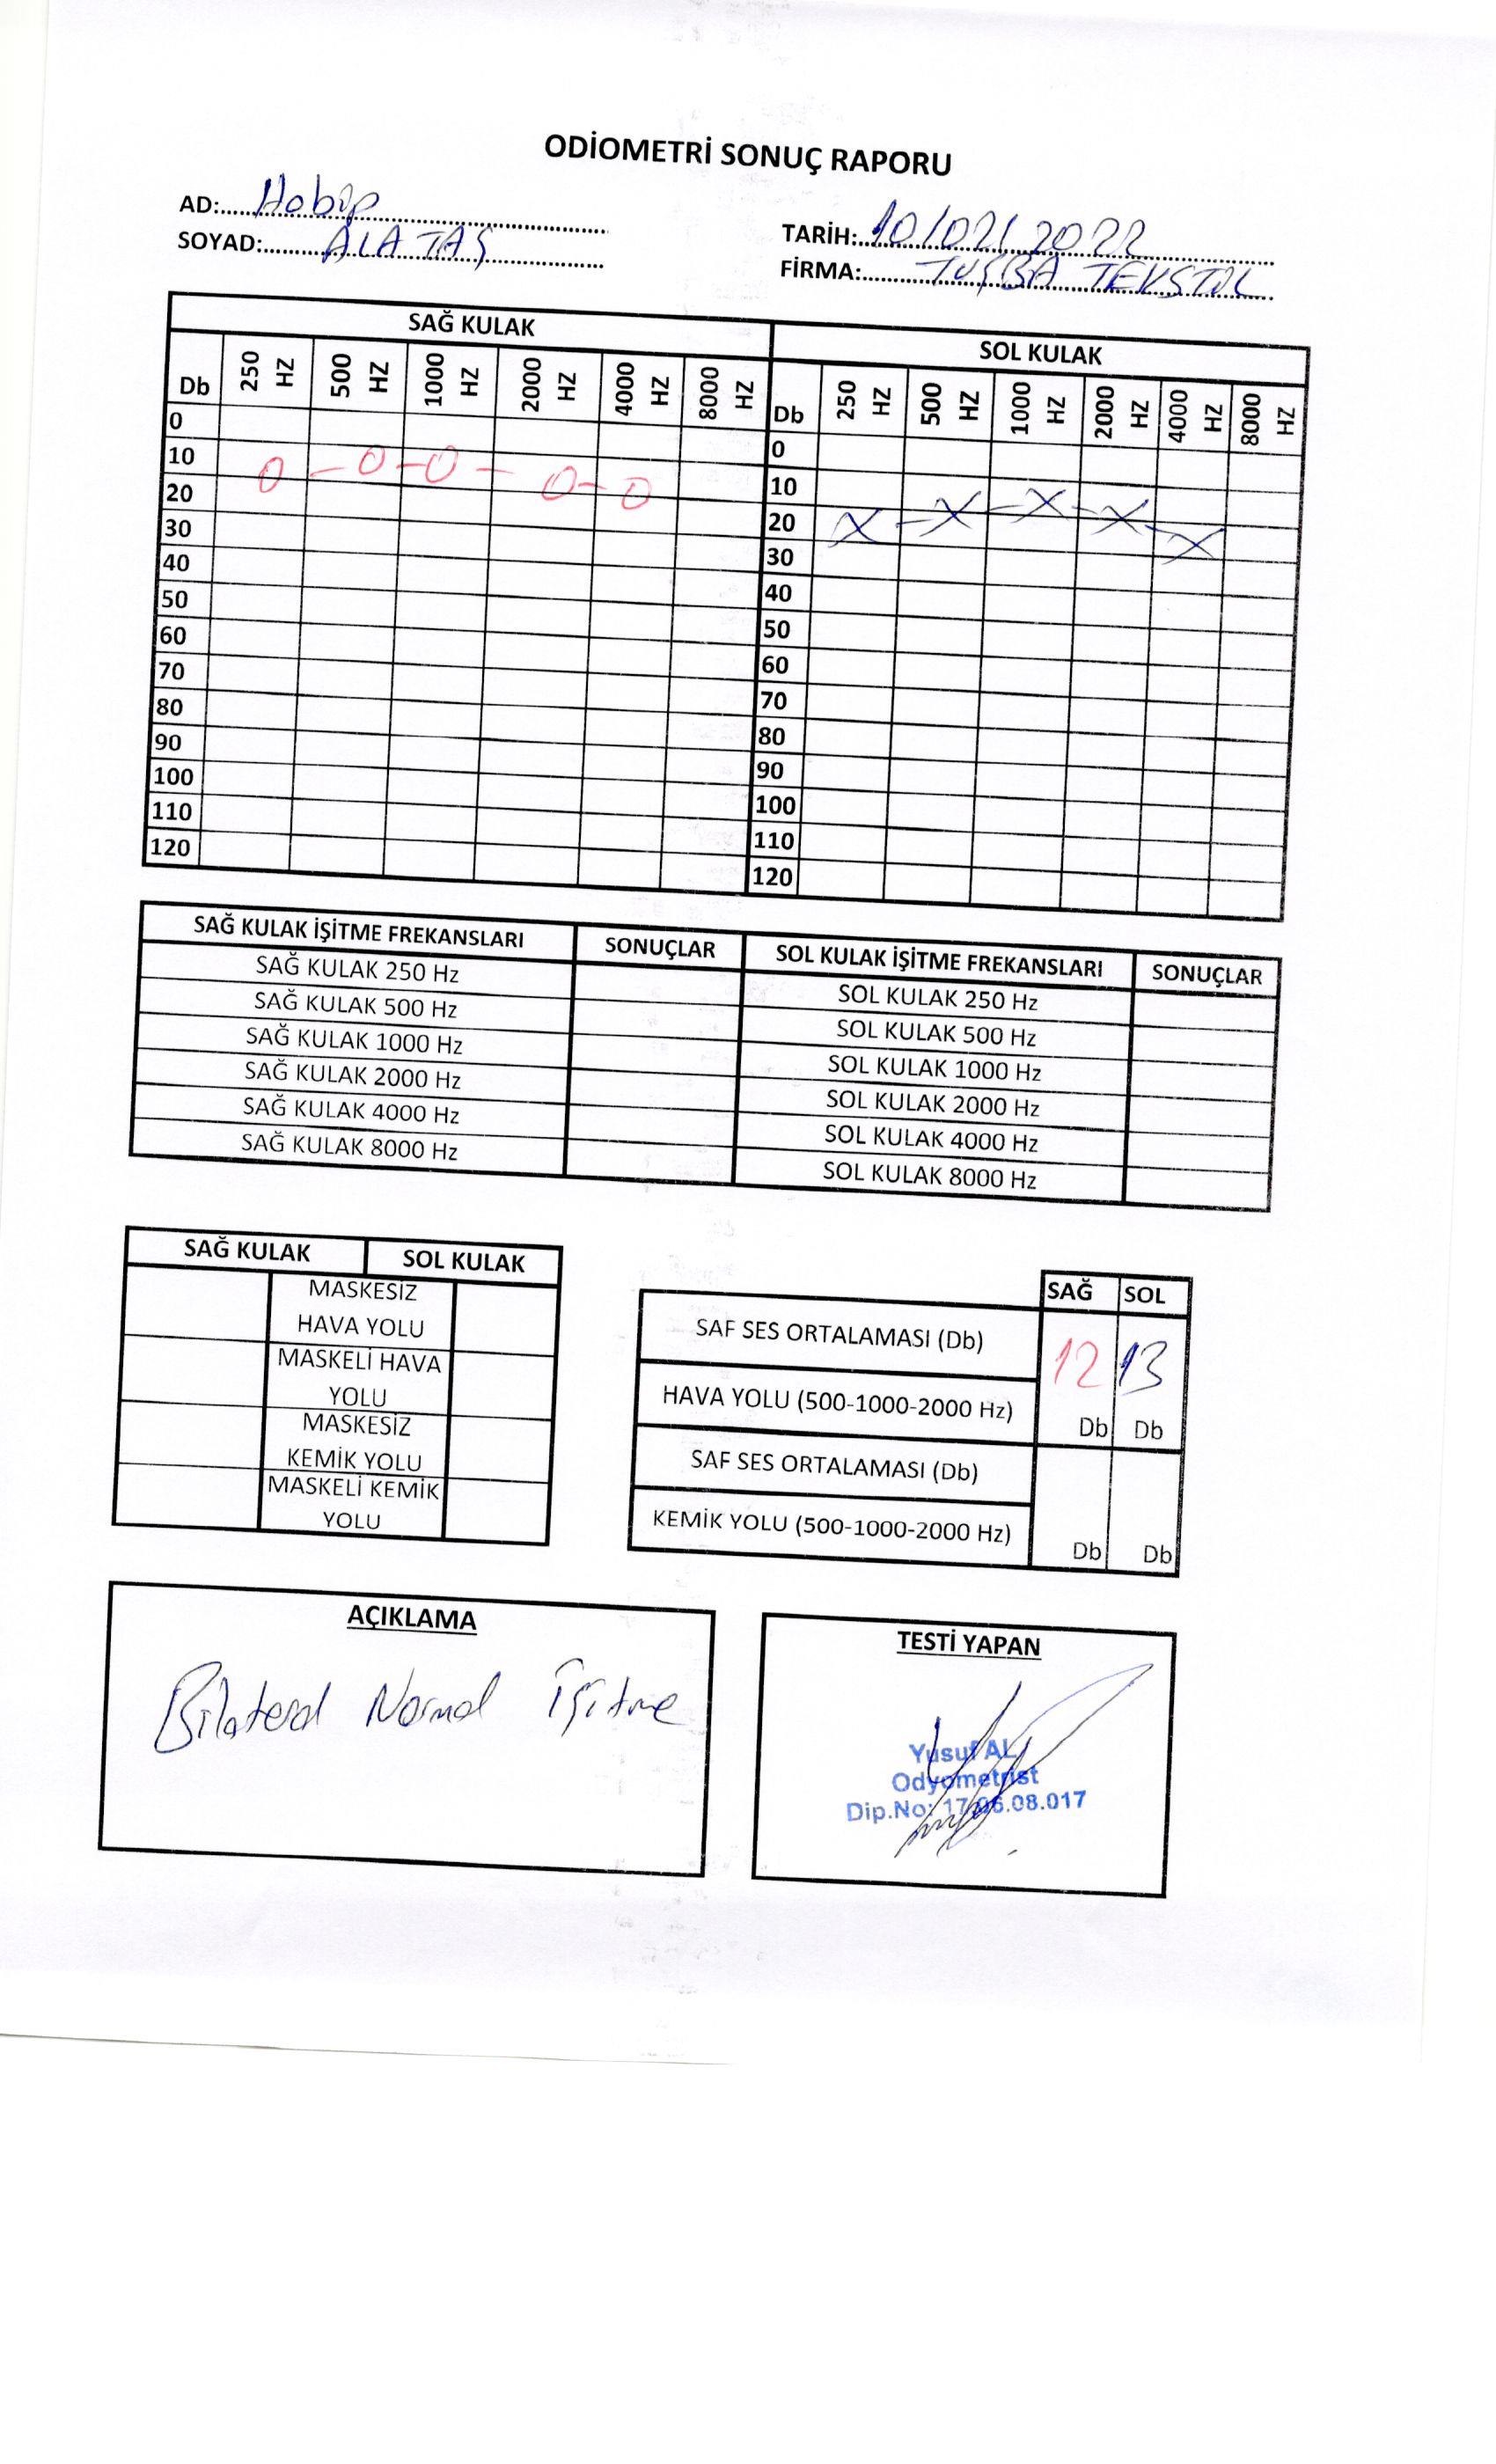 ODİOMETRİ SONUÇ RAPORU
AD: Habip
SOYAD: ALATAŞ
TARİH: 10/02/2022
FİRMA: TUŞBA TEKSTİL
SAĞ KULAK SOL KULAK
Db 250 HZ 500 HZ 1000 HZ 2000 HZ 4000 HZ 8000 HZ Db 250 HZ 500 HZ 1000 HZ 2000 HZ 4000 HZ 8000 HZ
0 0
10 O - O - O - O - O 10
20 20 X - X - X - X - X
30 30
40 40
50 50
60 60
70 70
80 80
90 90
100 100
110 110
120 120
SAĞ KULAK İŞİTME FREKANSLARI SONUÇLAR SOL KULAK İŞİTME FREKANSLARI SONUÇLAR
SAĞ KULAK 250 Hz SOL KULAK 250 Hz
SAĞ KULAK 500 Hz SOL KULAK 500 Hz
SAĞ KULAK 1000 Hz SOL KULAK 1000 Hz
SAĞ KULAK 2000 Hz SOL KULAK 2000 Hz
SAĞ KULAK 4000 Hz SOL KULAK 4000 Hz
SAĞ KULAK 8000 Hz SOL KULAK 8000 Hz
SAĞ KULAK SOL KULAK
MASKESİZ
HAVA YOLU
MASKELİ HAVA
YOLU
MASKESİZ
KEMİK YOLU
MASKELİ KEMİK
YOLU
SAĞ SOL
SAF SES ORTALAMASI (Db) 12 13
HAVA YOLU (500-1000-2000 Hz) Db Db
SAF SES ORTALAMASI (Db)
KEMİK YOLU (500-1000-2000 Hz) Db Db
AÇIKLAMA
Bilateral Normal İşitme
TESTİ YAPAN
Yusuf AL
Odyometrist
Dip.No: 17.06.08.017